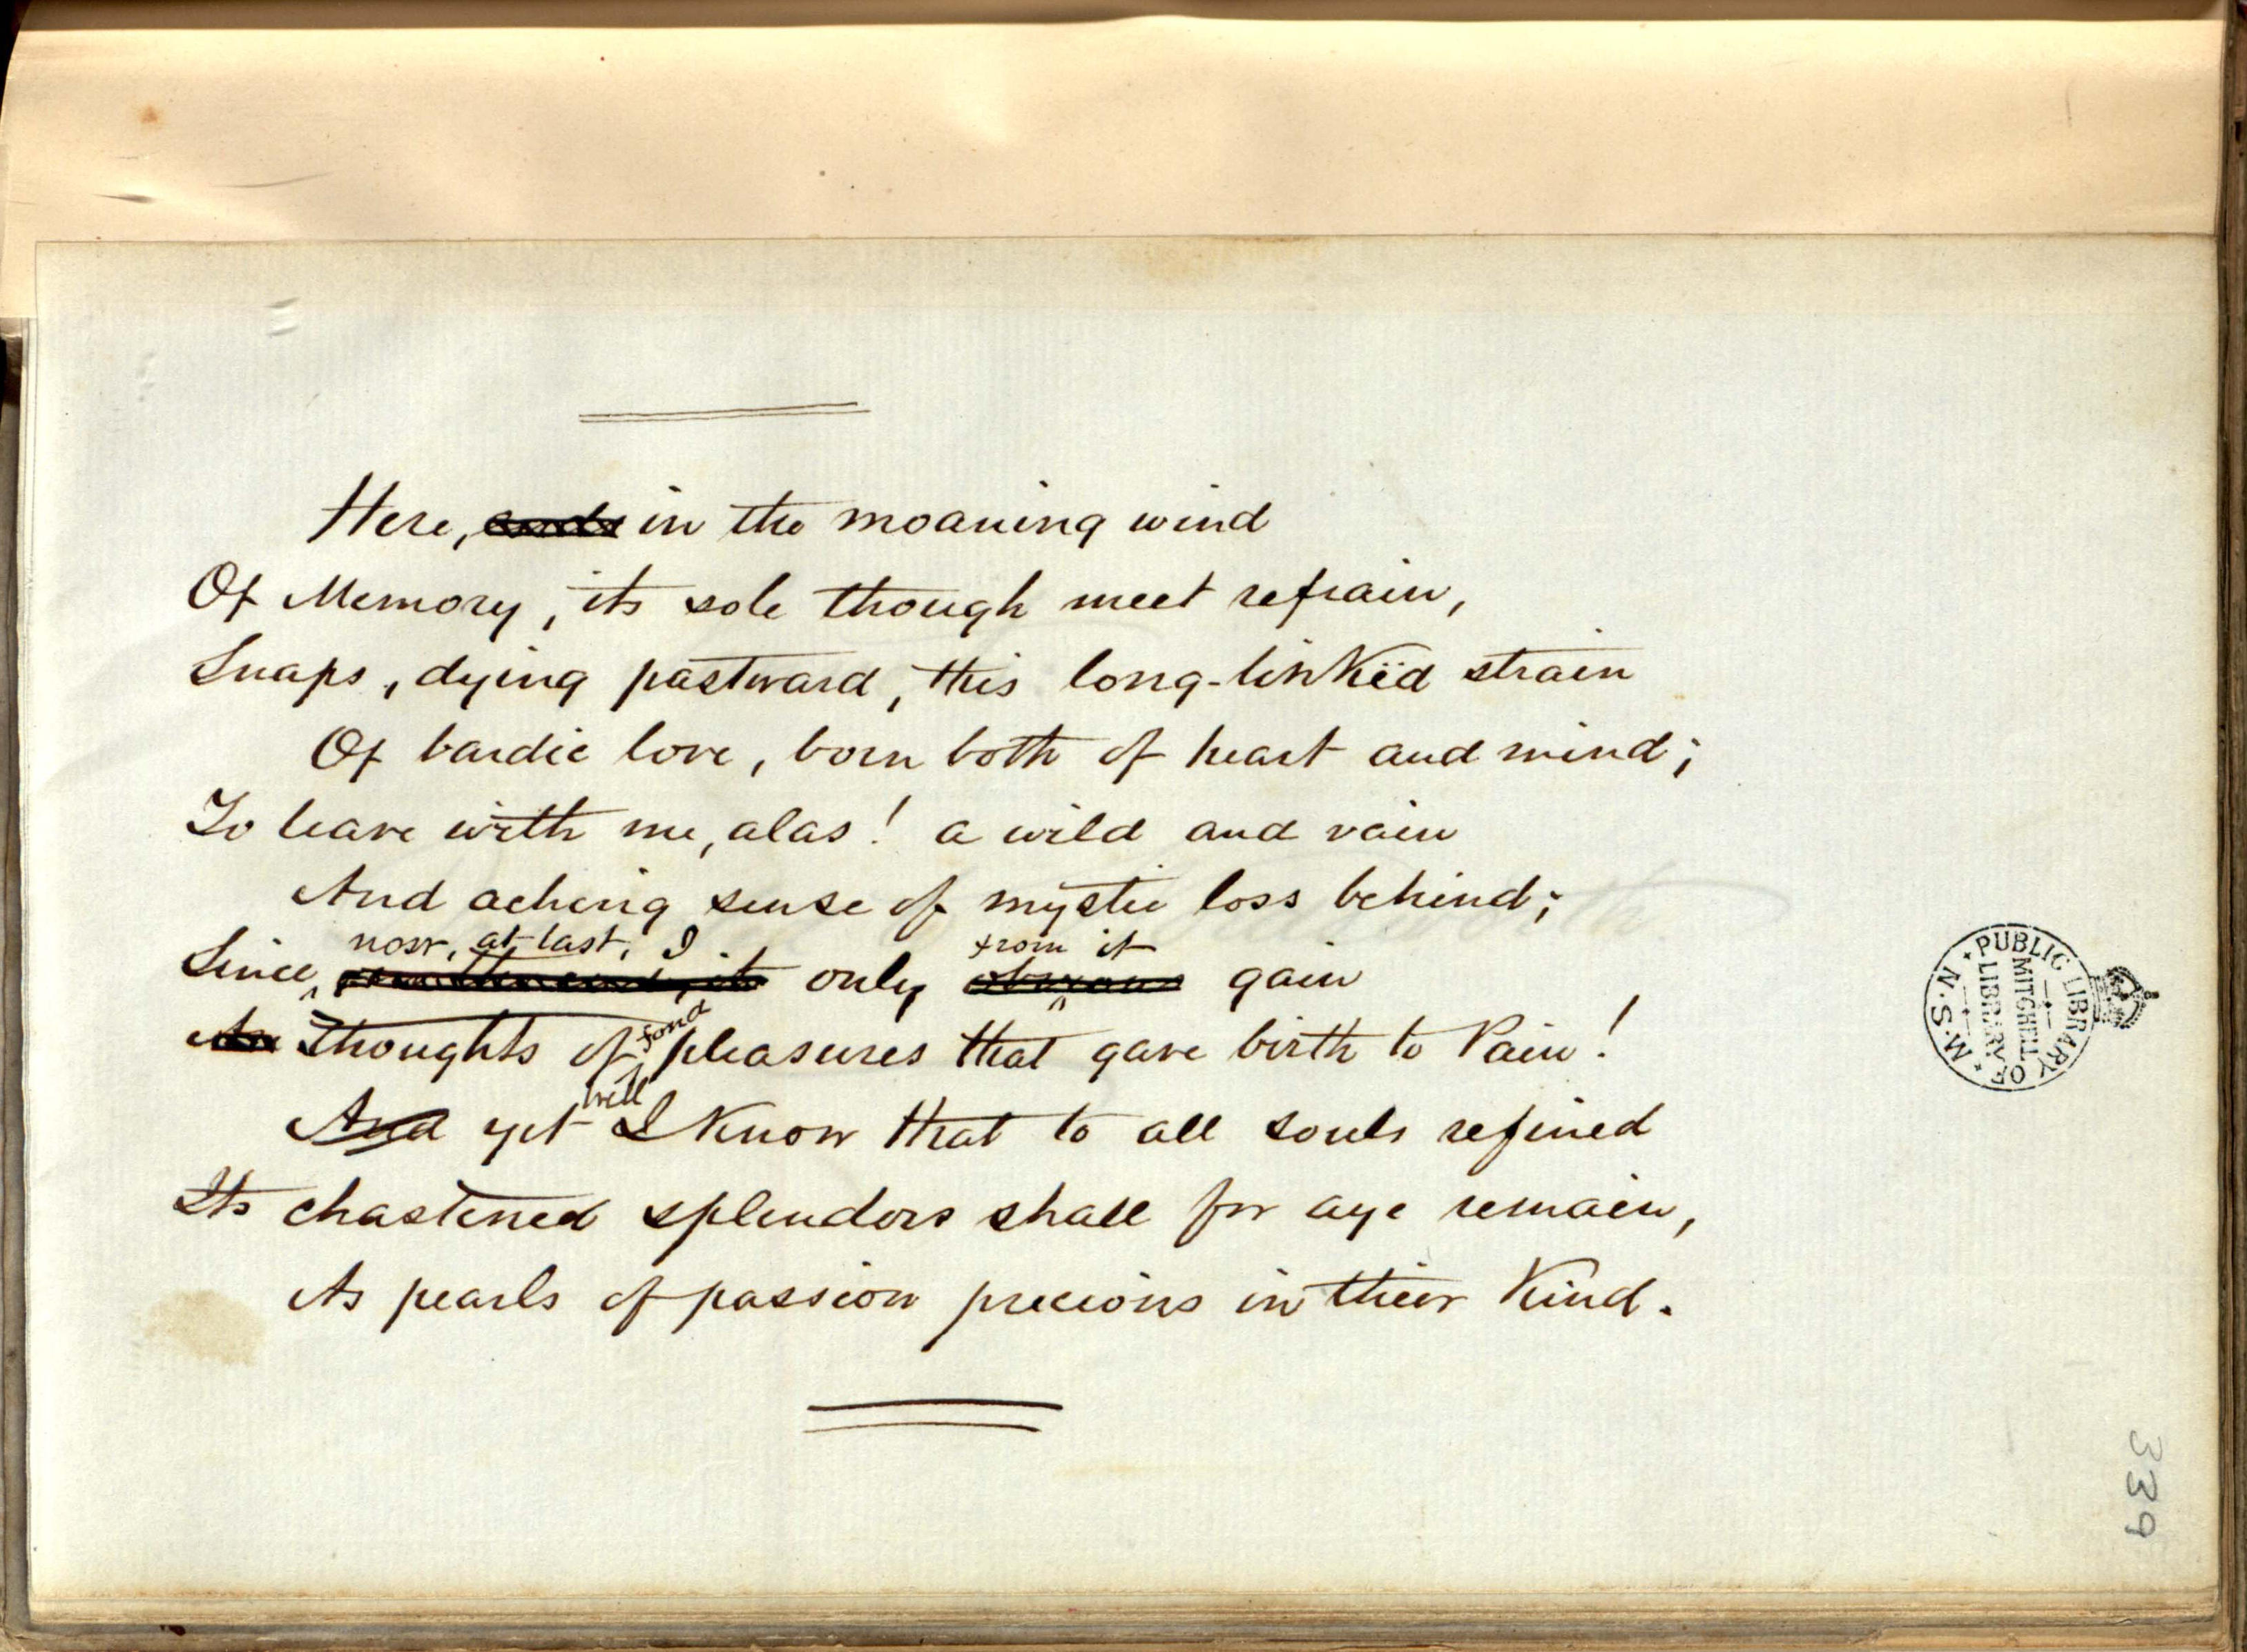 Here, ends in the moaning wind
Of Memory, its sole though meet refrain,
Snaps, dying pastward, this long-linkëd strain
Of bardic love, born both of heart and mind;
To leave with me, alas! a wild and vain
And aching sense of mystic loss behind;
now, at last, I from it
Since, only gain
Thoughts of fond pleasures that gave birth to Pain!
And yet well I Know that to all souls refined
Its chastened splendors shall for aye remain,
As pearls of passion precious in their Kind.
PUBLIC LIBRARY OF N.S.W.
MITCHELL
LIBRARY
339